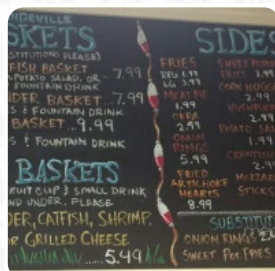 NDEVILLE
SKETS
STITUTIONS PLEASE)
FISH BASKET
POTATO SALAD, OR - 7.99
FOUNTAIN DRINK
DER BASKET...7.99
S & FOUNTAIN DRINK
BASKET...9.99
S & FOUNTAIN DRINK
BASKETS
RUIT CUP & SMALL DRINK
ND UNDER, PLEASE
DER, CATFISH, SHRIMP,
OR GRILLED CHEESE
......5.49
SIDES
FRIES
REG 1.99
LG 3.99
MEAT PIE
1.99
OKRA
2.99
ONION
RINGS
5.99
FRIED
ARTICHOKE
HEARTS
8.99
SWEET POTATO
FRIES 3.99
CORN NUGGE
2.99
HUSHPUP
POTATO SAL
1.99
MOZZAR
STICKS
SUBSTITUT
ONION RINGS
SWEET POT. FRIES